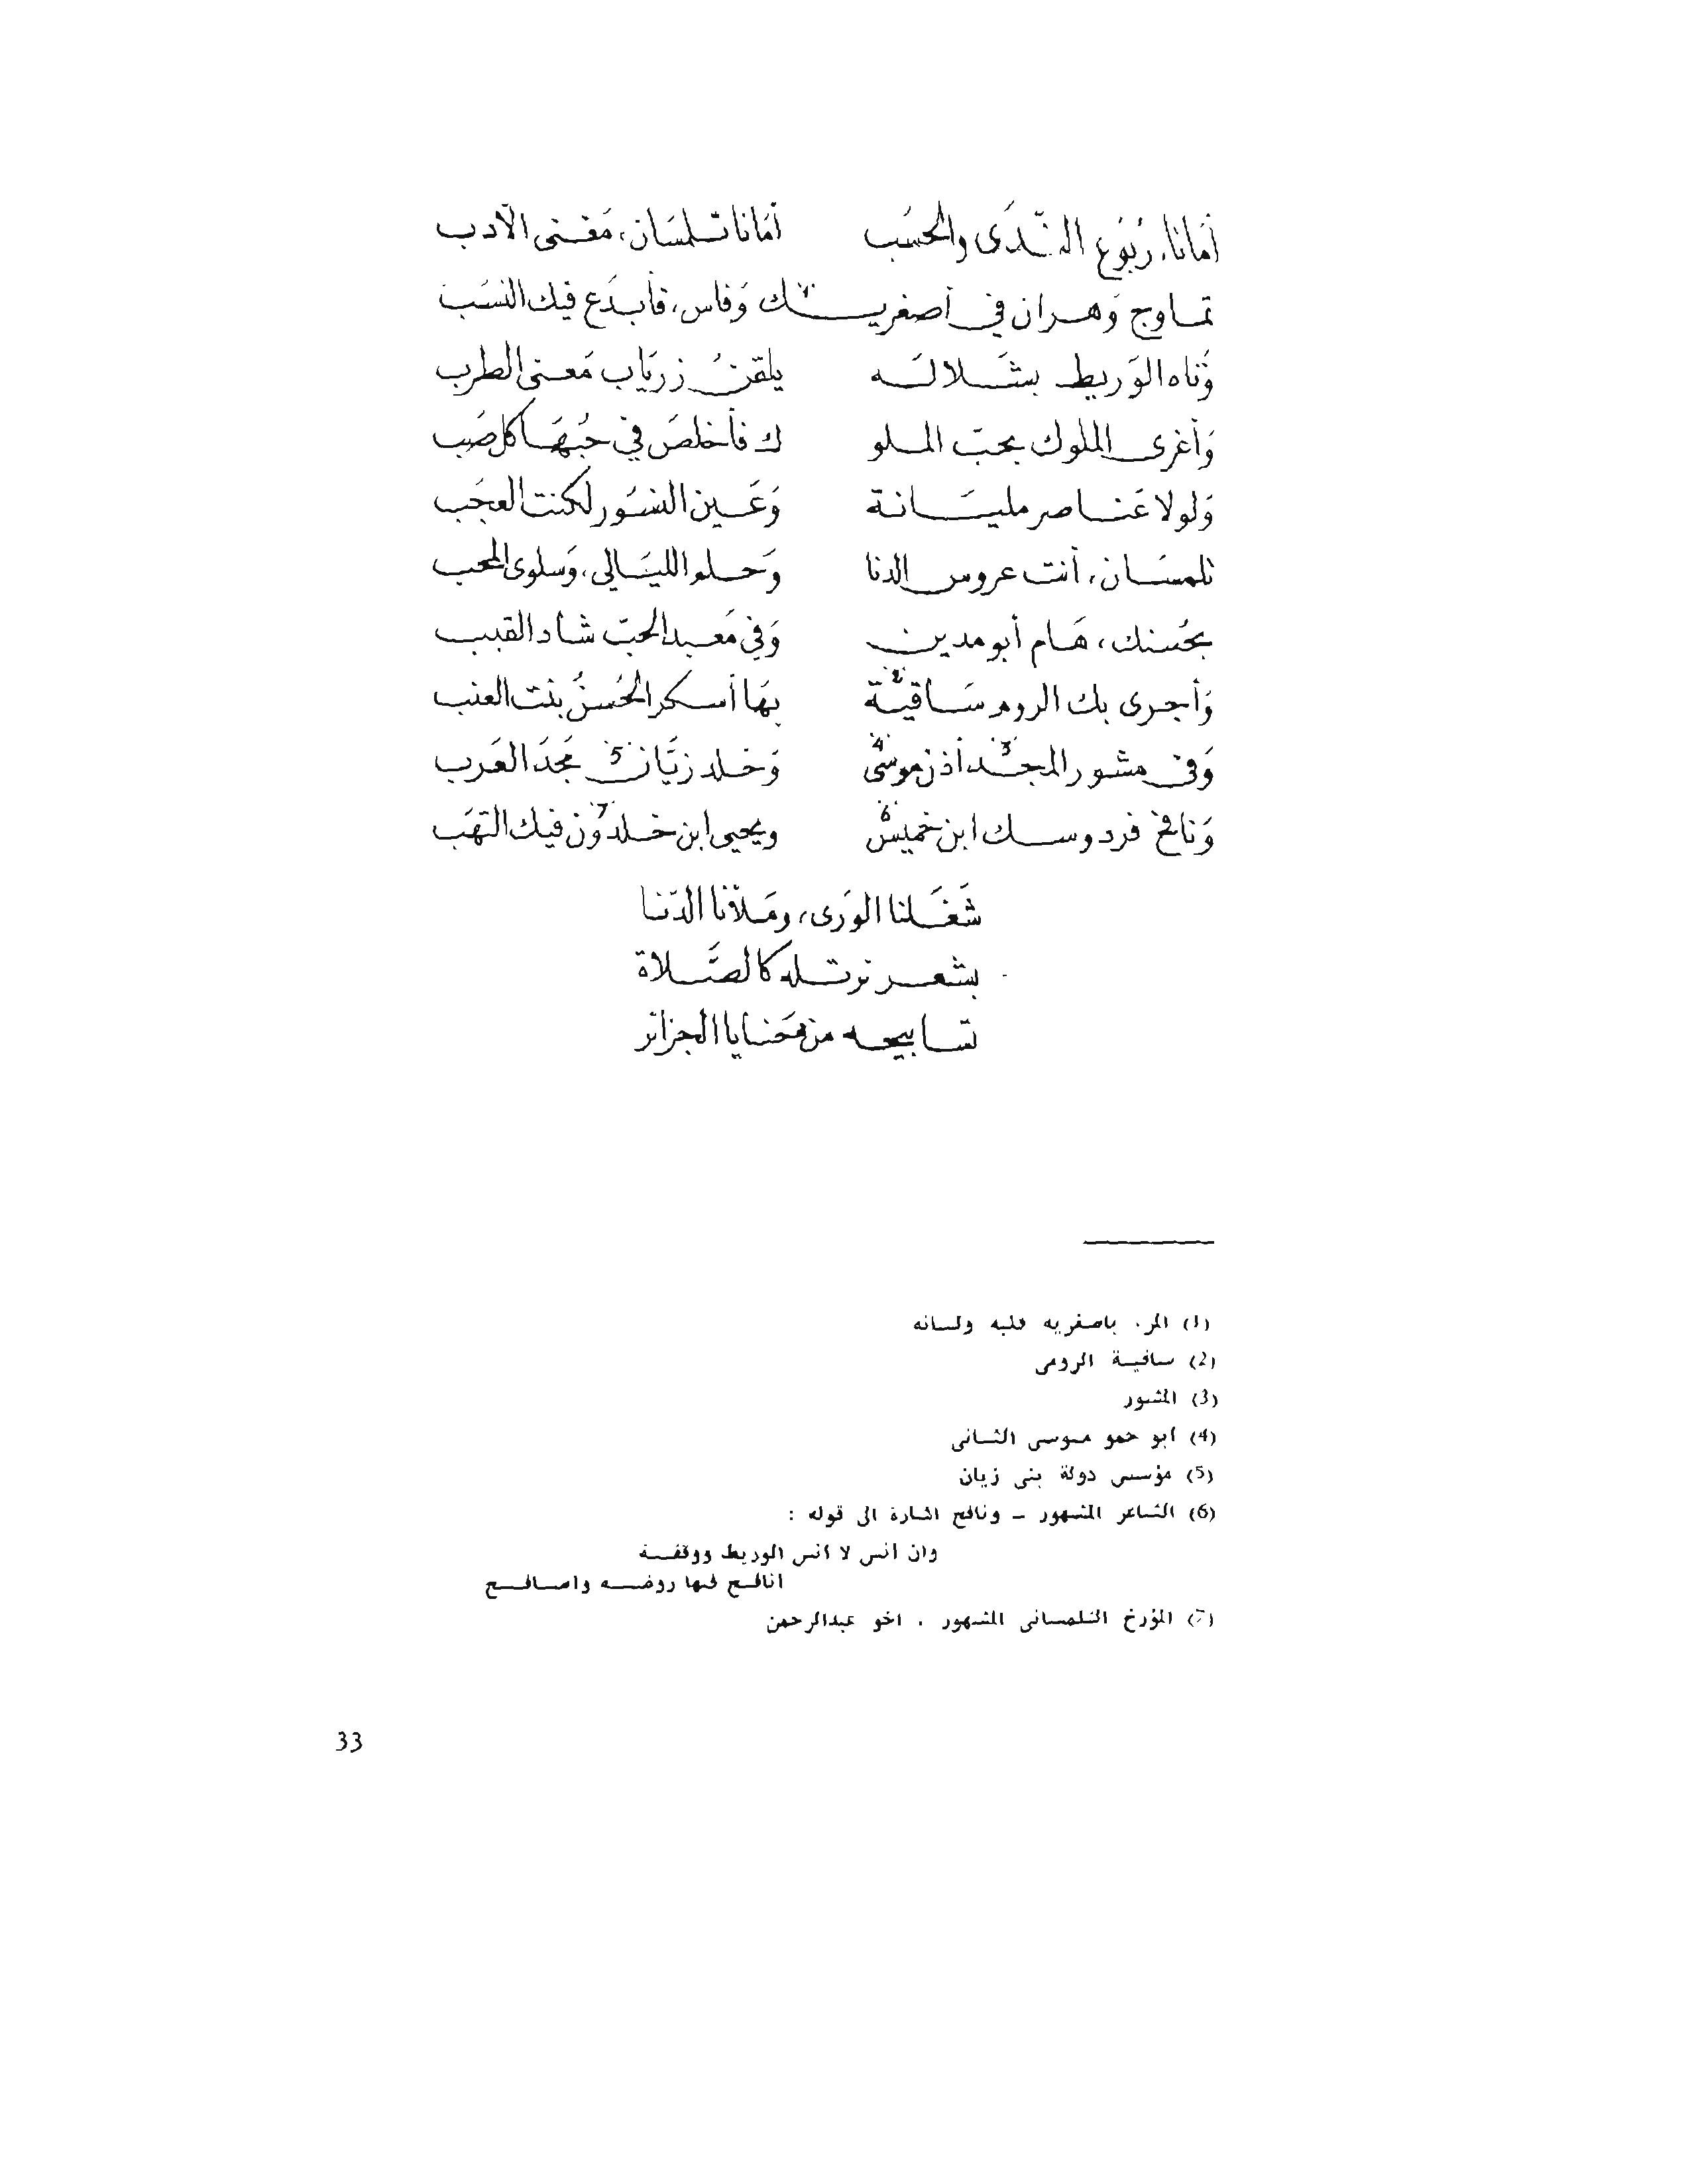 أمَانا، رُبُوع النّدَى والحسَب    أمَانا تلمسَان، مَغنى الأدب
تماوج وَهران في أصغريك(1) وَفاس، فأبدَع فيك النسَب
وَتاه الوَريط بشَلالَه    يلقنُ زريَاب مَعنى الطرب
وَأغرى الملوك بحبّ الملو    ك فأخلصَ في حُبهَا كل صَب
وَلولا عَناصر مليَانة    وَعَين النسُور لكنت العجَب
تلمسَان، أنت عروس الدنا    وَحلم الليَالي، وَسلوى المحب
بحُسنك، هَام أبو مدين    وَفي مَعبد الحبّ شاد القبب
وَأجرى بك الروم سَاقية(2)    بهَا أسكر الحُسنُ بنت العنب
وَفي مشور المجد(3) أذن موسَى(4)    وَخلد زيَّان(5) مَجدَ العَرب
وَنافح فردوسك ابن خميس(6)    ويحيى ابن خلدُون(7) فيك التهَب
شَغَلنا الوَرى، ومَلأنا الدّنا
بشعر نرتله كالصَّلاة
تسابيحه من حَنايا الجزائر
(1) المرء باصغريه قلبه ولسانه
(2) ساقية الرومى
(3) المشور
(4) ابو حمو موسى الثانى
(5) مؤسس دولة بنى زيان
(6) الشاعر المشهور – ونافح اشارة الى قوله :
وان انس لا انس الوريط ووقفة
انافح فيها روضه واصافح
(7) المؤرخ التلمسانى المشهور . اخو عبدالرحمن
33